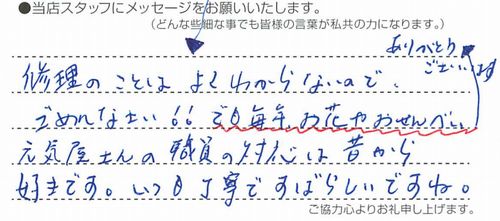 ●当店スタッフにメッセージをお願いいたします。
（どんな些細な事でも皆様の言葉が私共の力になります。）
ありがとう
ございます
修理のことは よくわからないので、
ごめんなさい！！でも毎年、お花やおせんべい、
元気屋さんの職員の対応は昔から
好きです。いつも丁寧ですばらしいですね。
ご協力心よりお礼申し上げます。